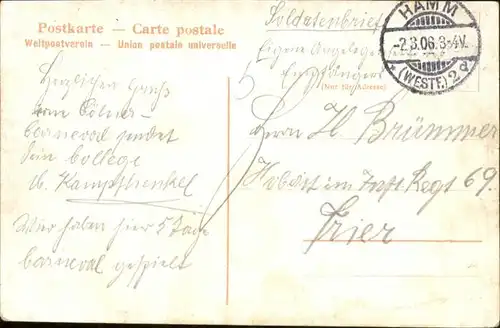 Postkarte – Carte postale
Weltpostverein – Union postale universelle
Soldatenbrief
Eigene Angelegenheit
Empfängers
(Nur für Adresse)
HAMM
-2.3.06.3-4V.
(WESTF.) 2d
5
Herzlichen Gruß
vom Cölner
Carneval sendet
dein College
H. Kampschenkel
Wir haben hier 5 Tage
Carneval gespielt
Herrn H. Brümmer
Hoboist im Inft. Regt 69.
Trier